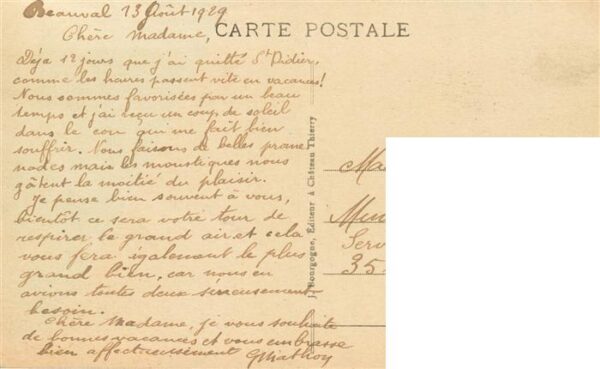 Beauval 13 Août 1929
CARTE POSTALE
Chère Madame,
Déjà 12 jours que j'ai quitté St Didier,
comme les heures passent vite en vacances!
Nous sommes favorisées par un beau
temps et j'ai reçu un coup de soleil
dans le cou qui me fait bien
souffrir. Nous faisons de belles prome
nades mais les moustiques nous
gâtent la moitié du plaisir.
Je pense bien souvent à vous,
bientôt ce sera votre tour de
respirer le grand air et cela
vous fera également le plus
grand bien, car nous en
avions toutes deux sérieusement
besoin.
Chère Madame, je vous souhaite
de bonnes vacances et vous embrasse
bien affectueusement GMathon
J. Bourgogne, Editeur à Château Thierry
Ma
Mun
Serv
35